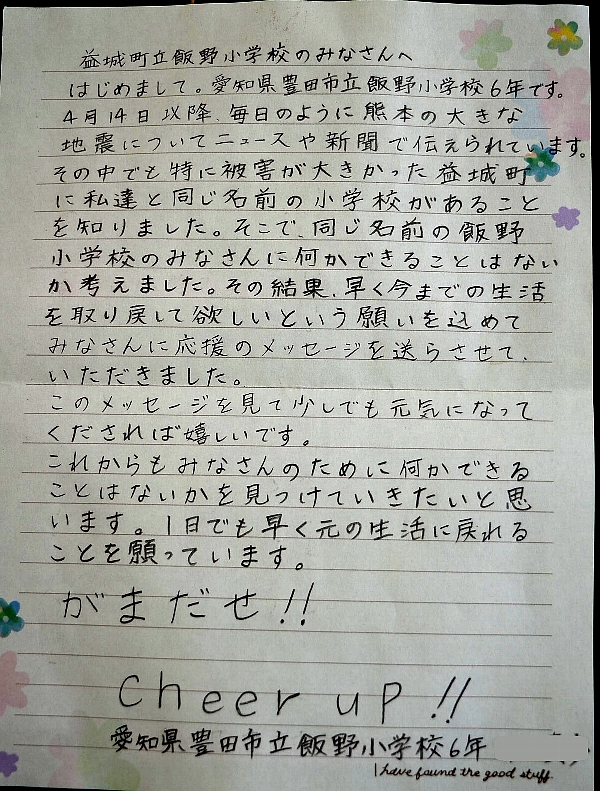 益城町立飯野小学校のみなさんへ
はじめまして。愛知県豊田市立飯野小学校6年です。
4月14日以降、毎日のように熊本の大きな
地震についてニュースや新聞で伝えられています。
その中でも特に被害が大きかった益城町
に私達と同じ名前の小学校があること
を知りました。そこで、同じ名前の飯野
小学校のみなさんに何かできることはない
か考えました。その結果、早く今までの生活
を取り戻して欲しいという願いを込めて
みなさんに応援のメッセージを送らさせて、
いただきました。
このメッセージを見て少しでも元気になって
くだされば嬉しいです。
これからもみなさんのために何かできる
ことはないかを見つけていきたいと思
います。1日でも早く元の生活に戻れる
ことを願っています。
がまだせ!!
cheer up!!
愛知県豊田市立飯野小学校6年
I have found the good stuff.